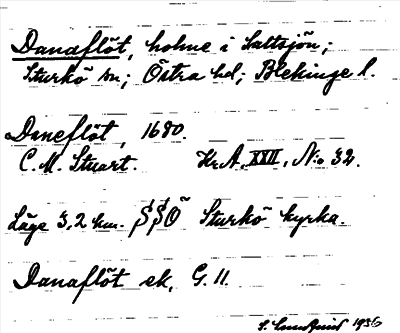 Danaflöt, holme i Saltsjön;
Sturkö sn; Östra hd; Blekinge l.
Daneflöt, 1680.
C. M. Stuart. Kr.A. XXII, N:o 32.
Läge 3,2 km. SSÖ Sturkö kyrka.
Danaflöt ek. G. 11.
1936